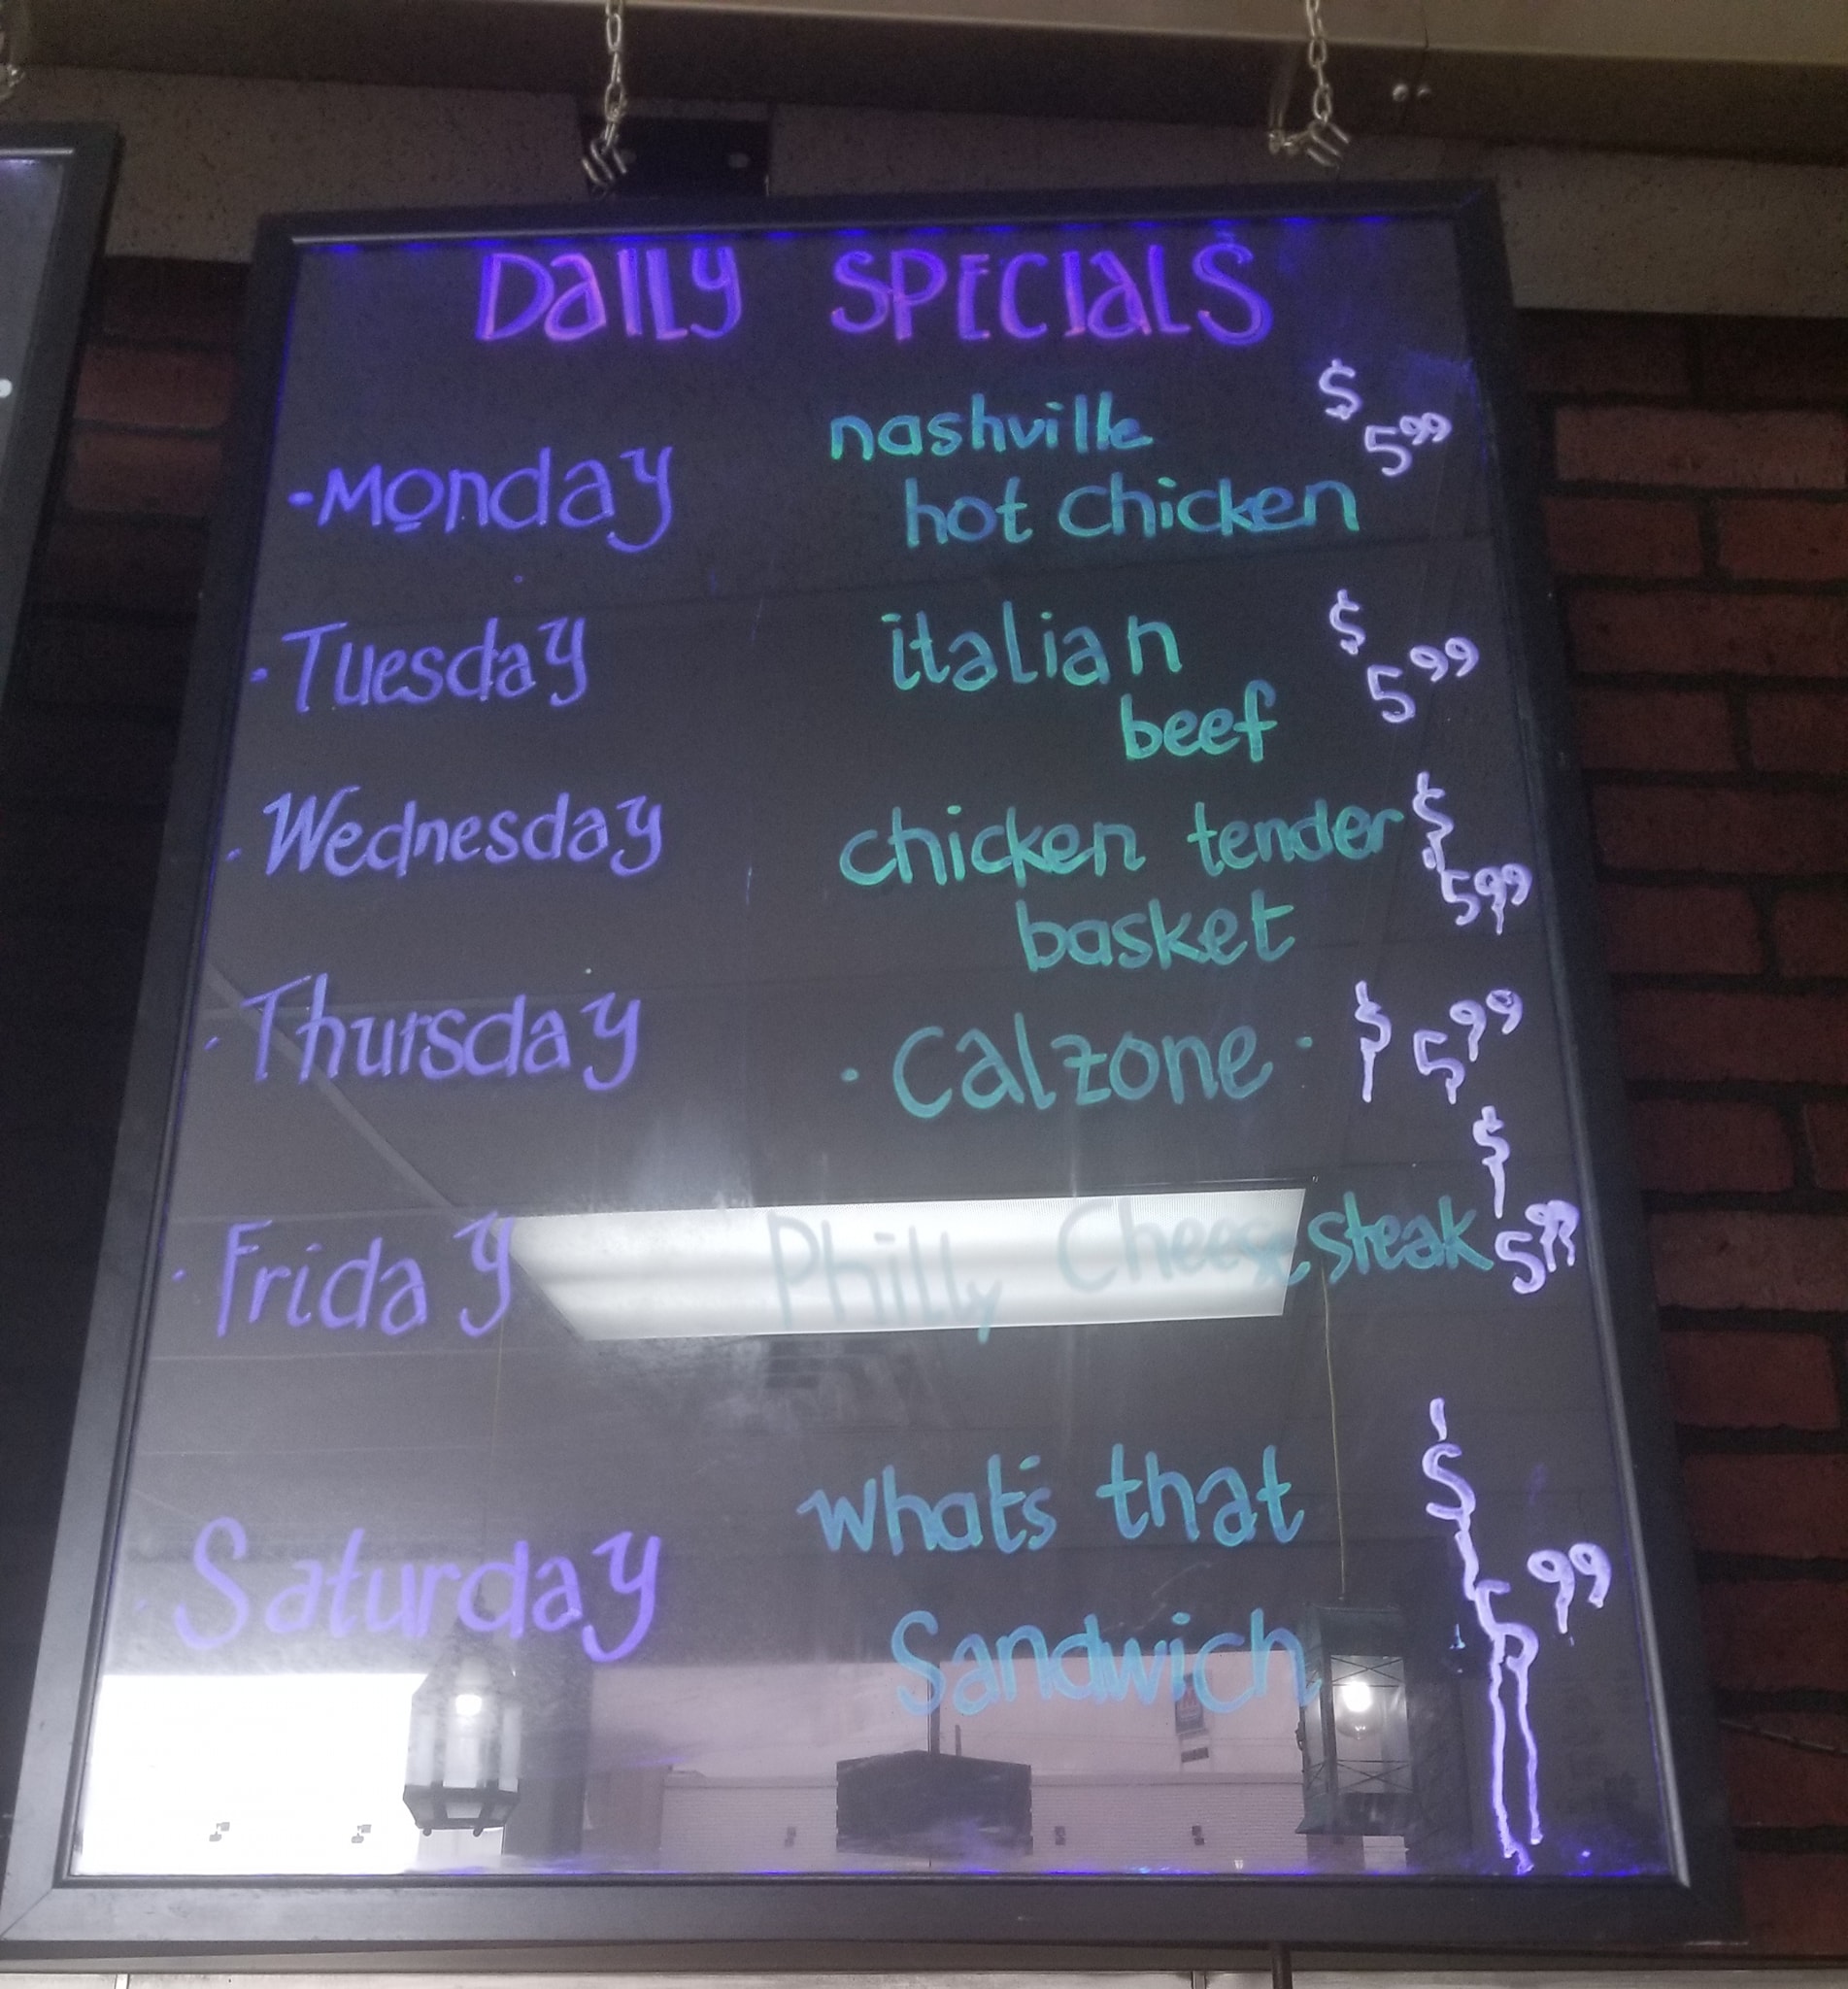 DaILy SPECIaLS
-Monday nashville $ 5⁹⁹
hot chicken
·Tuesday italian $ 5⁹⁹
beef
·Wednesday chicken tender $ 5⁹⁹
basket
·Thursday ·Calzone· $ 5⁹⁹
·Friday Philly Cheese steak $ 5⁹⁹
·Saturday what's that $ 5⁹⁹
Sandwich